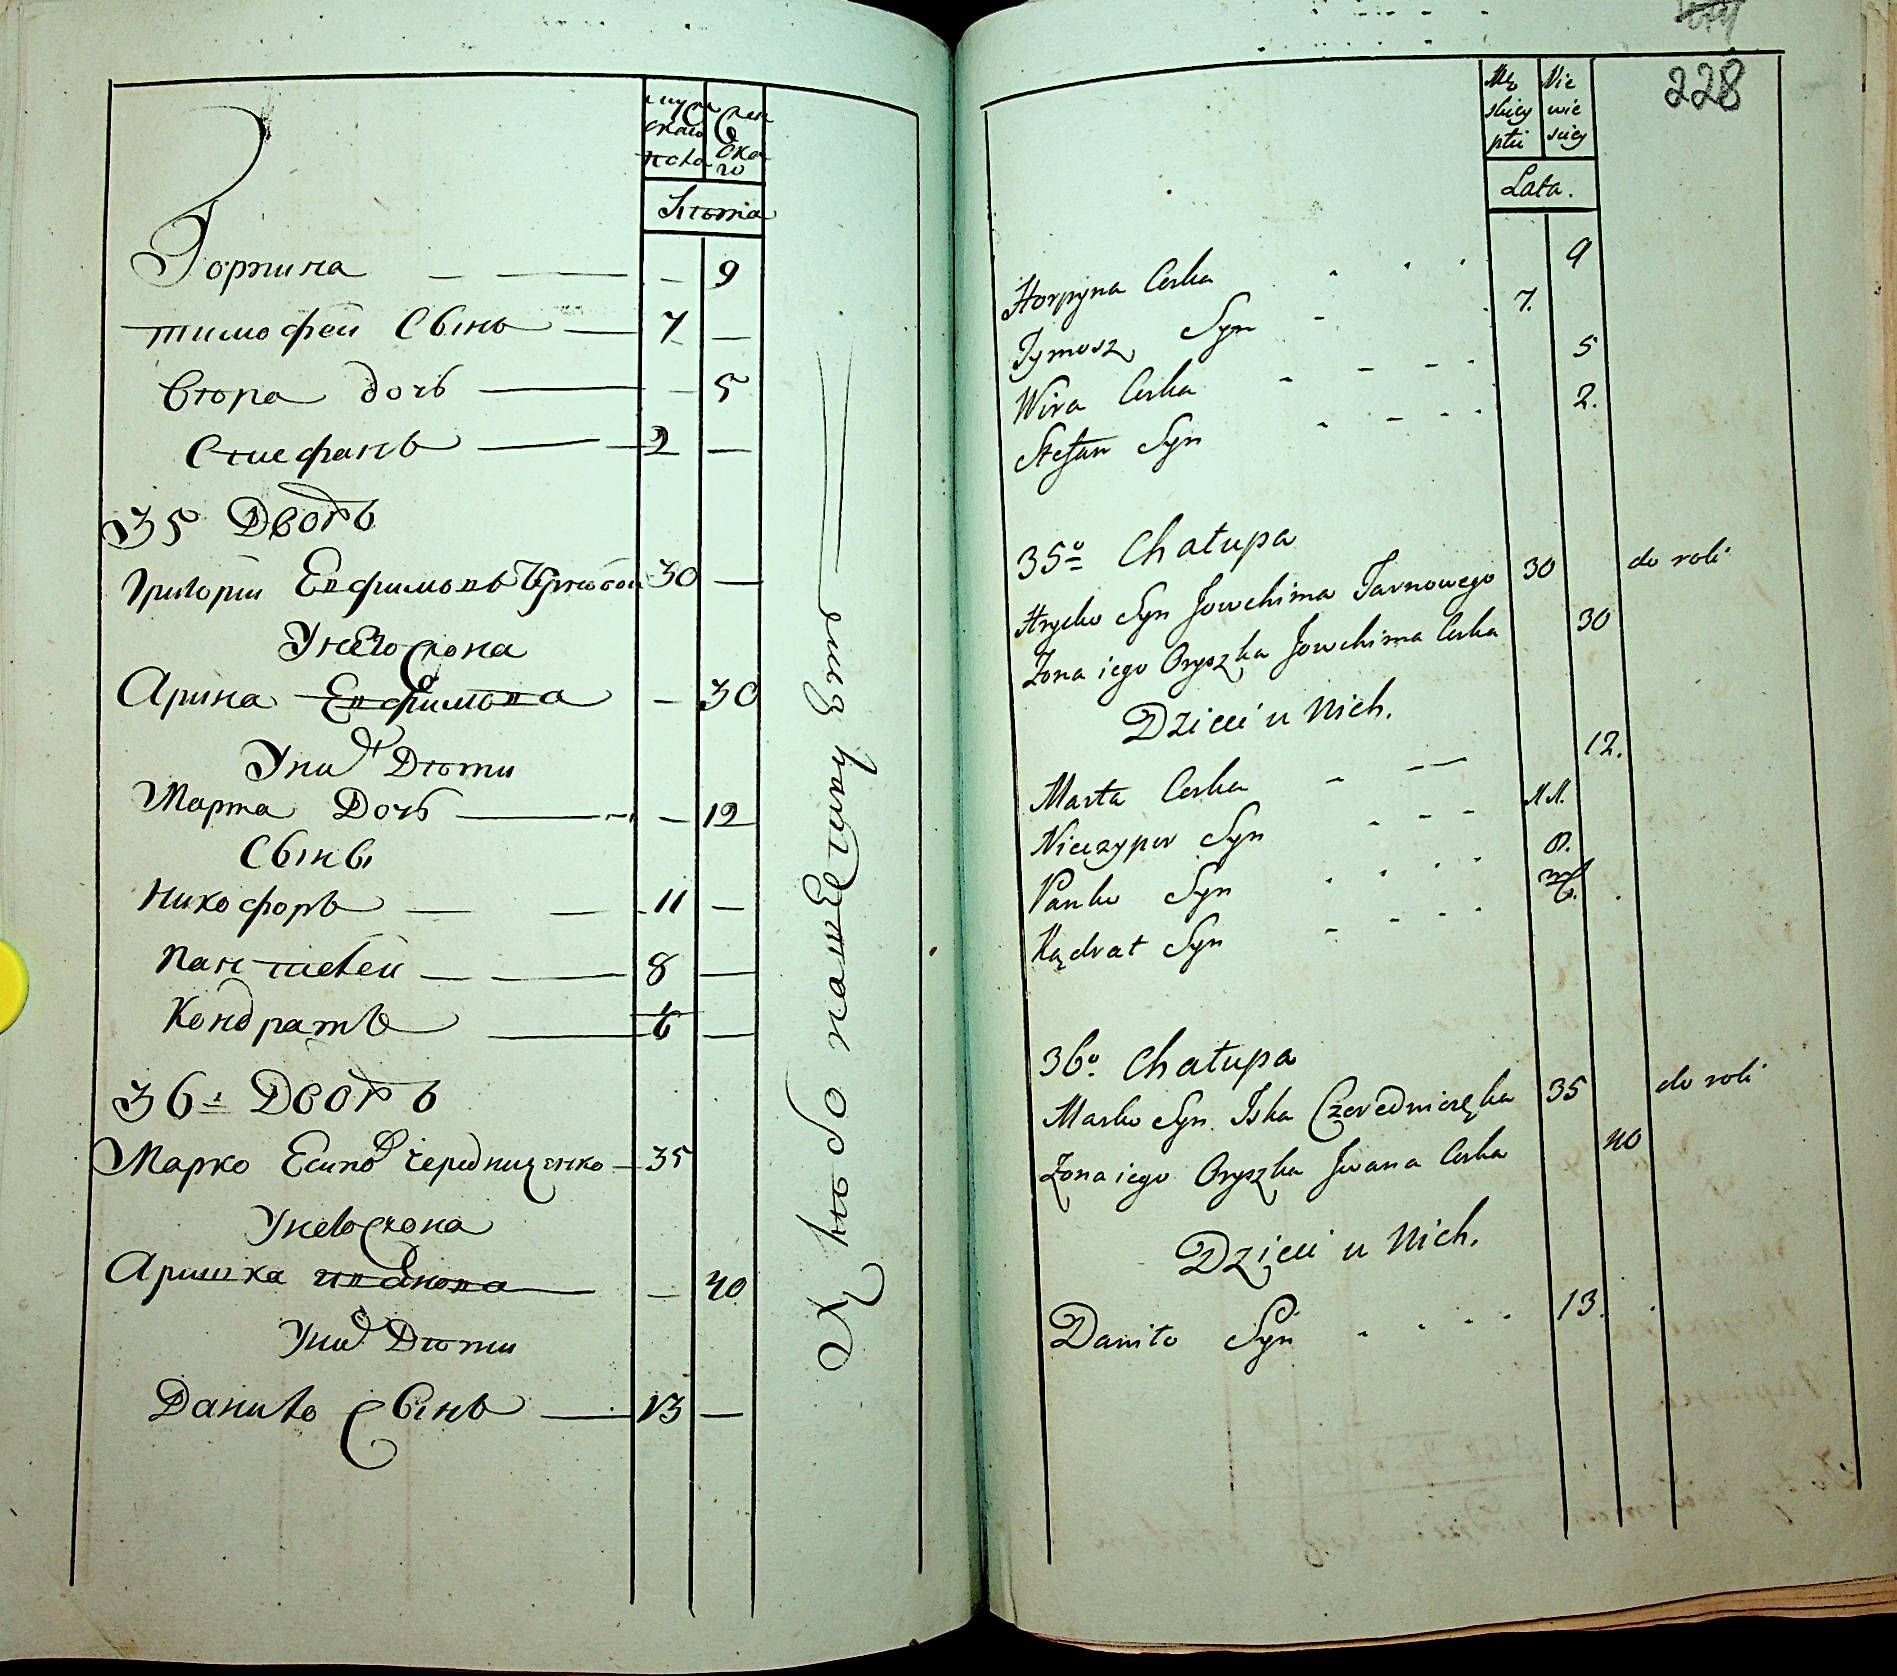 муж
скаго
пола
жен
ска
го
Лѣта
Горпина — — 9
тимофеи Сынъ — 7 —
Вѣра дочь — — 5
Стефанъ — 2 —
35 Дворъ
Григории Евфимовъ 30 —
У него жона
Арина Евфимова — 30
У них Дѣти
Марта Дочь — — 12
Сыны
Никофоръ — — 11 —
Пантелеи — — 8 —
Кондратъ — 6 —
36й Дворъ
Марко Есипов Чередниченко — 35
У него жона
Аришка иванова — 40
У них Дѣти
Данило Сынъ — 13 —
К хлѣбо пашеству
228
Mę
skiey
płci
Nie
wie
sciey
Lata.
Horpyna Corka 9
Tymosz Syn 7.
Wira Corka 5
Stefan Syn 2.
35º Chałupa
Hryćko Syn Jowchima Tarnowego 30 do roli
Zona iego Oryszka Jowchima Corka 30
Dzieci u Nich.
Marta Corka 12.
Nieczypor Syn 11.
Pańko Syn 8.
Kądrat Syn 6.
36º Chałupa
Marko Syn Iśka Czeredniczęka 35 do roli
Zona iego Oryszka Jwana Corka 40
Dzieci u Nich.
Daniło Syn 13.